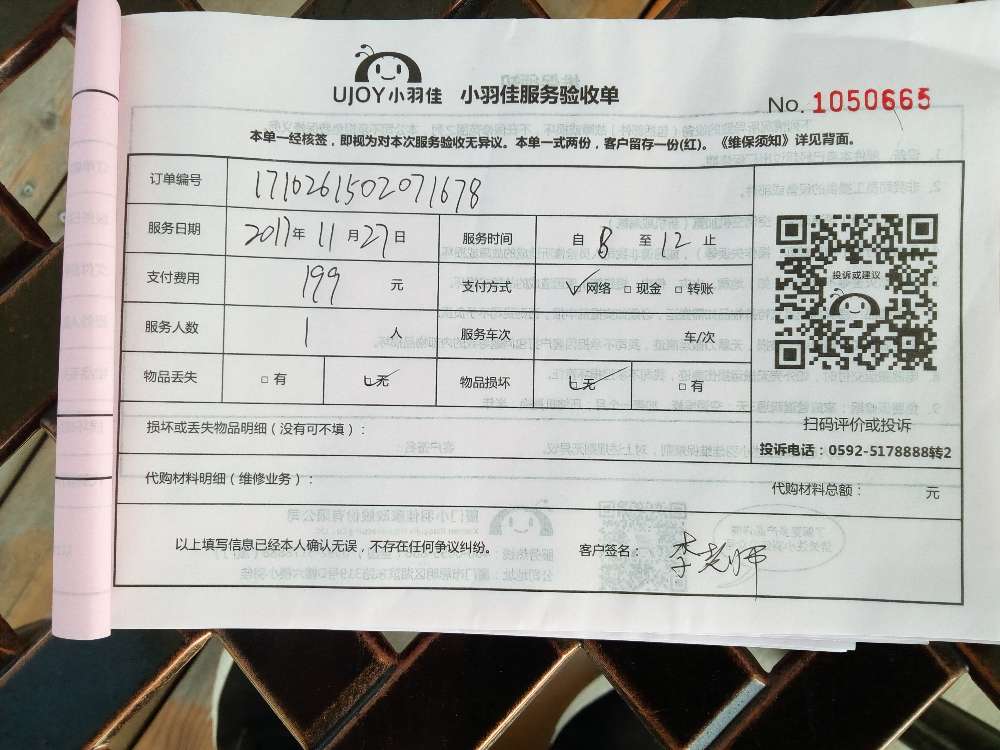 UJOY小羽佳 小羽佳服务验收单
No. 1050665
本单一经核签，即视为对本次服务验收无异议。本单一式两份，客户留存一份(红)。《维保须知》详见背面。
订单编号 1710261502071678
服务日期 2017年 11月 27日 服务时间 自 8 至 12 止
支付费用 199 元 支付方式 ☑网络 □现金 □转账
服务人数 1 人 服务车次 车/次
物品丢失 □有 ☑无 物品损坏 ☑无 □有
投诉或建议
扫码评价或投诉
投诉电话：0592-5178888转2
损坏或丢失物品明细（没有可不填）：
代购材料明细（维修业务）： 代购材料总额： 元
以上填写信息已经本人确认无误，不存在任何争议纠纷。 客户签名： 李老师